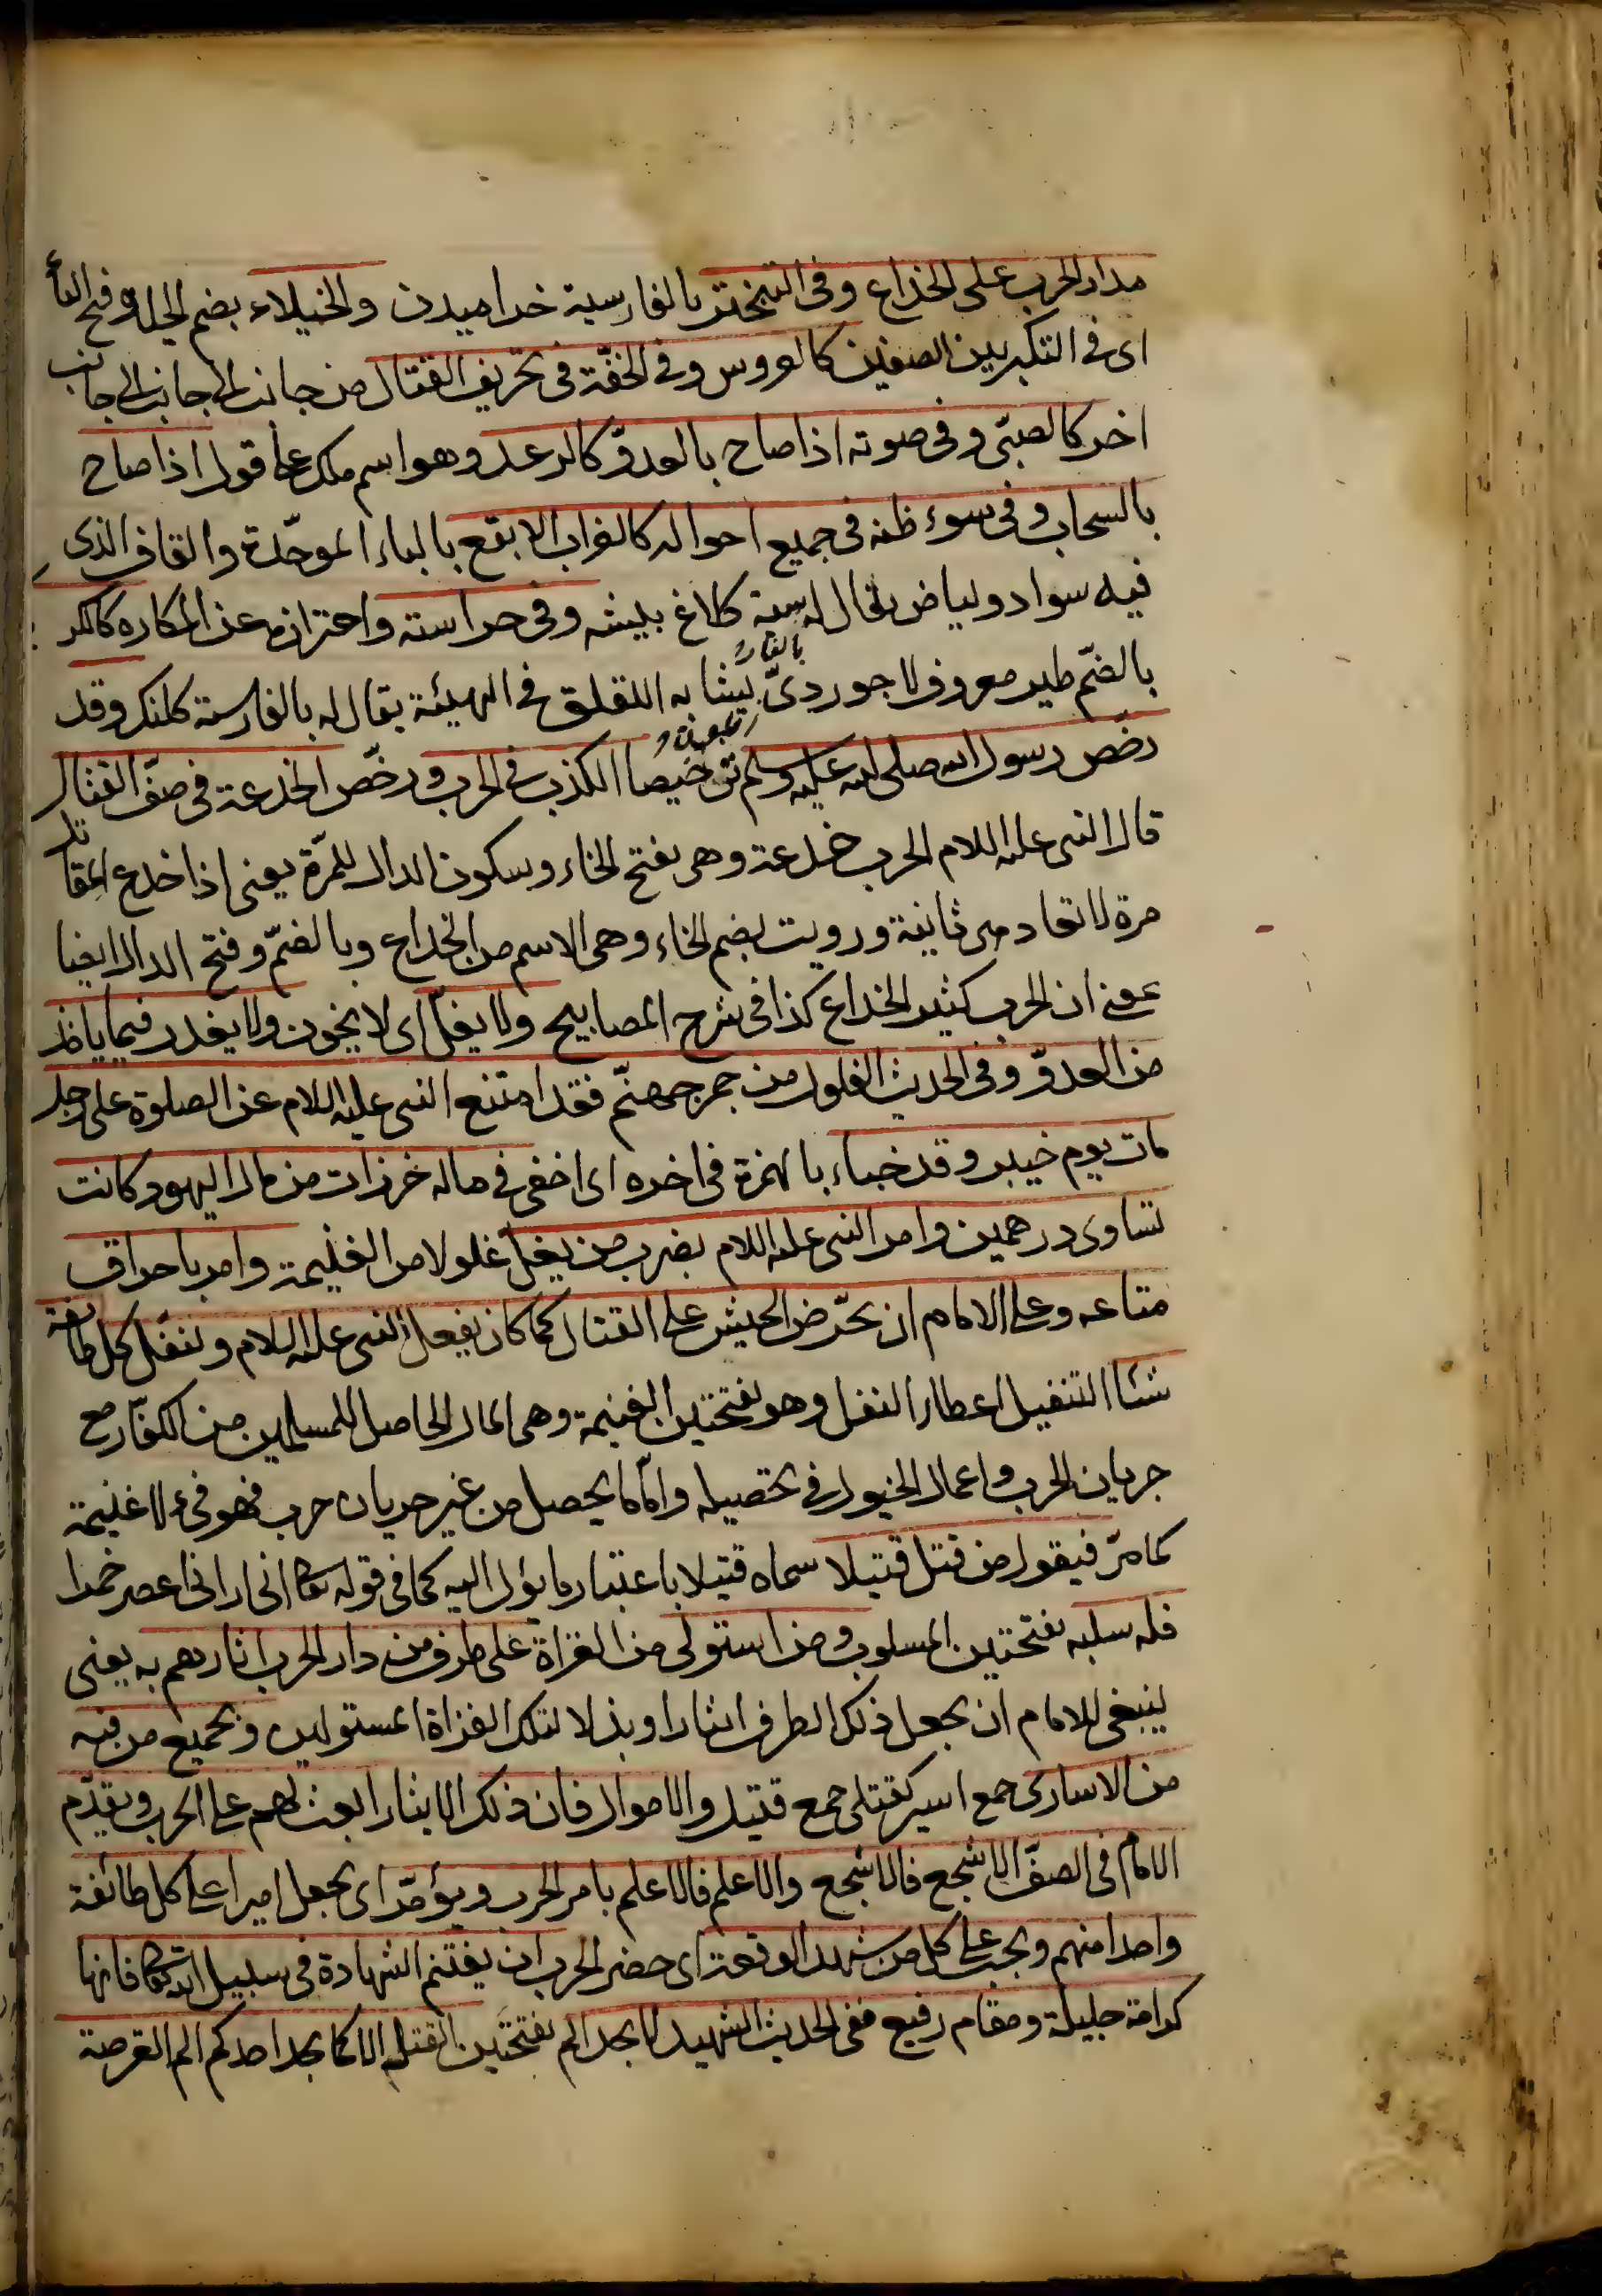 مدار الحرب على الخداع وفى التبختر بالفارسية خراميدن والخيلاء بضم الخاء وفتح الياء
اى فى التكبر بين الصفين كالعروس وفى الخفّة فى تحريف القتال من جانب الى جانب الى جانب
اخر كالصبىّ وفى صوته اذا صاح بالعدوّ كالرعد وهو اسم ملك على قول اذا صاح
بالسحاب وفى سوء ظنه فى جميع احواله كالغراب الابقع بالباء الموحّدة والقاف الذى
فيه سواد وبياض يقال له بالفارسية كلاغ بيشه وفى حراسته واحترازه عن المكاره كالكركى
بالضمّ طير معروف لاجوردىّ يشابه اللقلق فى الهيئة يقال له بالفارسية كلنك وقد
رخّص رسول الله صلى الله عليه وسلم ترخيصا الكذب فى الحرب ورخّص الخدعة فى صفّ القتال
قال النبى عليه السلام الحرب خدعة وهى بفتح الخاء وسكون الدال للمرّة يعنى اذا خدع المقاتل
مرة لا تعاد مرة ثانية ورويت بضم الخاء وهى الاسم من الخداع وبالضمّ وفتح الدال ايضا
بمعنى ان الحرب كثير الخداع كذا فى شرح المصابيح ولا يغلّ اى لا يخون ولا يغدر فيما ياخذ
من العدوّ وفى الحديث الغلول من جمر جهنّم فقد امتنع النبى عليه السلام عن الصلوة على رجل
مات يوم خيبر وقد خباء بالهمزة فى اخره اى اخفى فى ماله خرزات من مال اليهود كانت
تساوى درهمين وامر النبى عليه السلام بضرب من يغلّ غلولا من الغنيمة وامر باحراق
متاعه وعلى الامام ان يحرّض الجيش على القتال كما كان يفعل النبى عليه السلام وينفّل كل طائفة
شيئا التنفيل اعطاء النفل وهو بفتحتين الغنيمة وهى المال الحاصل للمسلمين من الكفّار مع
جريان الحرب واعمال الخيول فى تحصيله وامّا ما يحصل من غير جريان حرب فهو فىء لا غنيمة
كما مرّ فيقول من قتل قتيلا سماه قتيلا باعتبار ما يؤل اليه كما فى قوله تعالى انى ارانى اعصر خمرا
فله سلبه بفتحتين المسلوب ومن استولى من الغزاة على طرف من دار الحرب اثارهم به يعنى
ينبغى للامام ان يجعل ذلك الطرف ايثارا وبذلا لتلك الغزاة المستولين وبجميع من فيه
من الاسارى جمع اسير كقتلى جمع قتيل والاموال فان ذلك الايثار ابعث لهم على الحرب ويقدّم
الامام فى الصفّ الاشجع فالاشجع والاعلم فالاعلم بامر الحرب ويؤمّر اى يجعل اميرا على كل طائفة
واحدا منهم ويجب على كل من شهد الوقعة اى حضر الحرب ان يغتنم الشهادة فى سبيل الله تعالى فانها
كرامة جليلة ومقام رفيع ففى الحديث الشهيد لا يجد الم بفتحتين القتل الا كما يجد احدكم الم القرصة